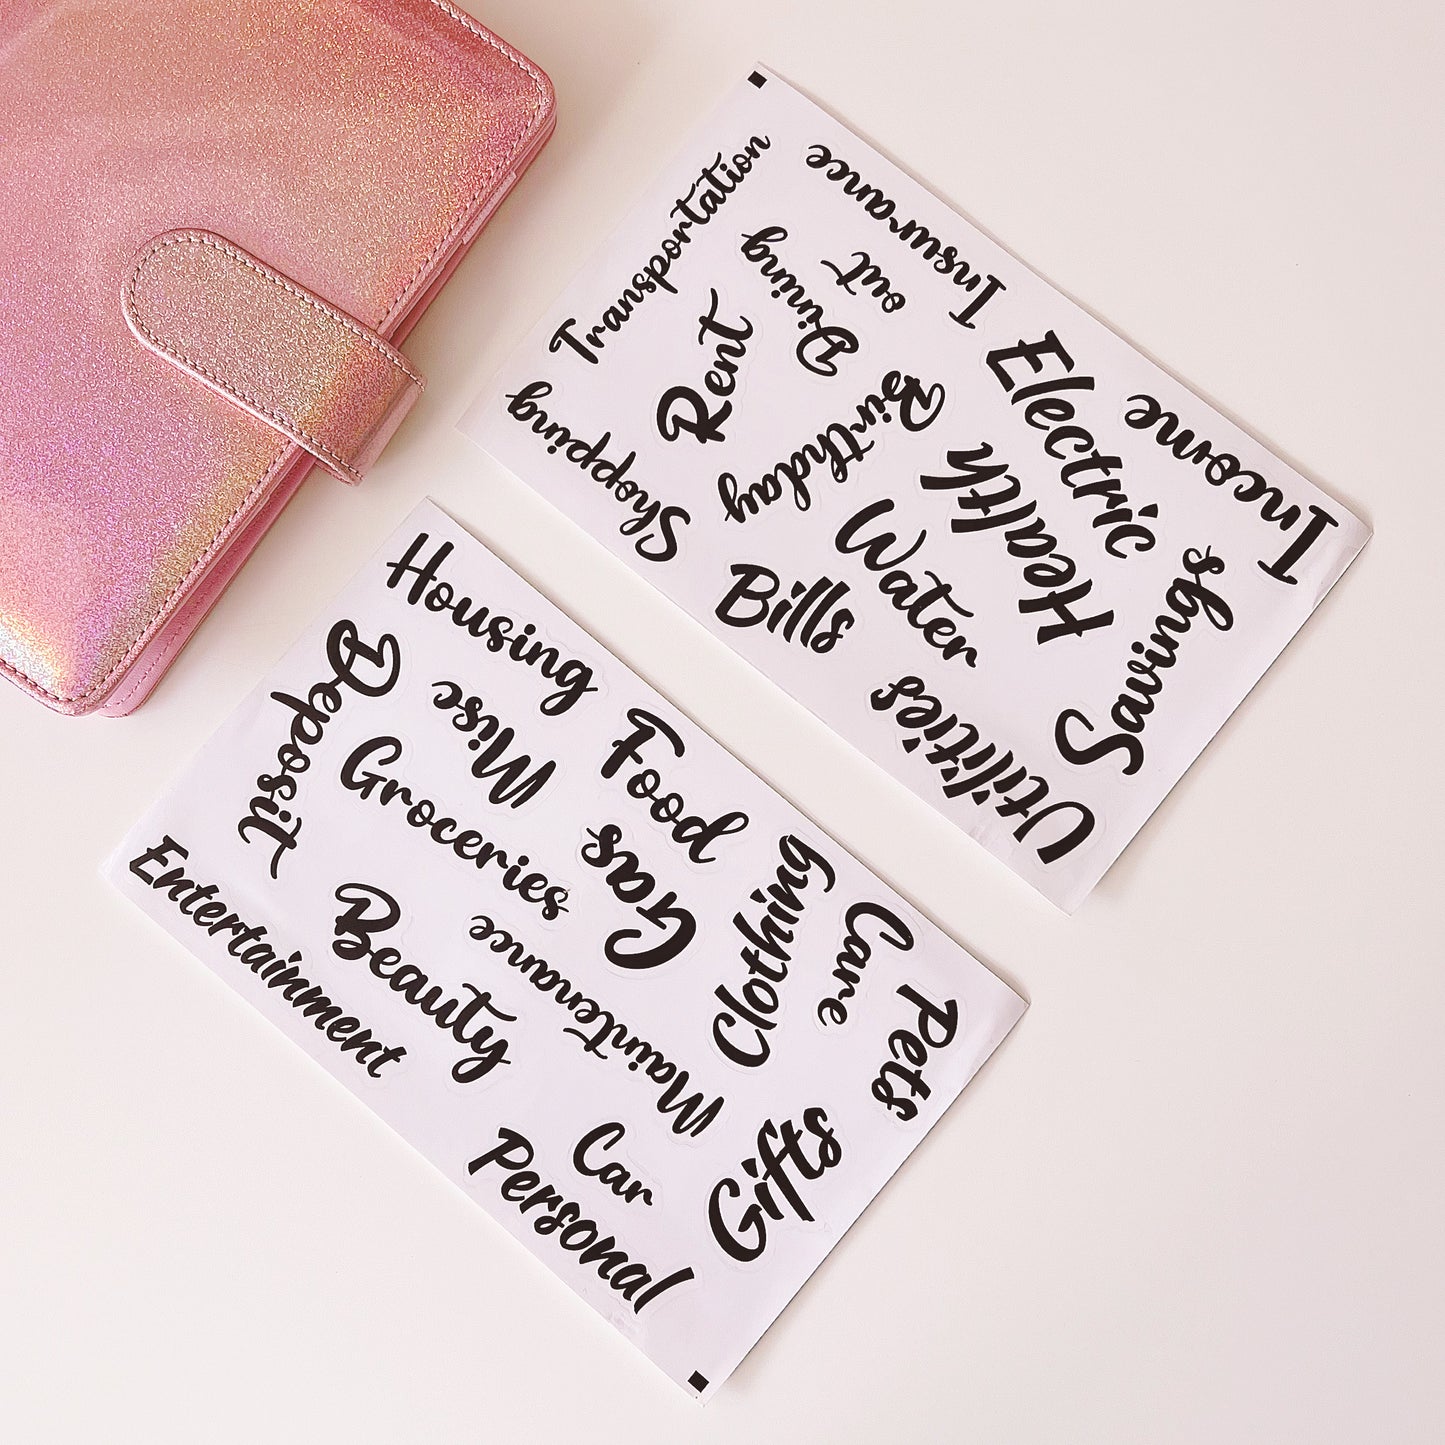 Transportation
Insurance
Dining
out
Rent
Shopping
Birthday
Electric
Income
Health
Water
Bills
Savings
Utilities
Housing
Deposit
Misc
Food
Groceries
Gas
Entertainment
Beauty
Maintenance
Clothing
Care
Pets
Car
Personal
Gifts